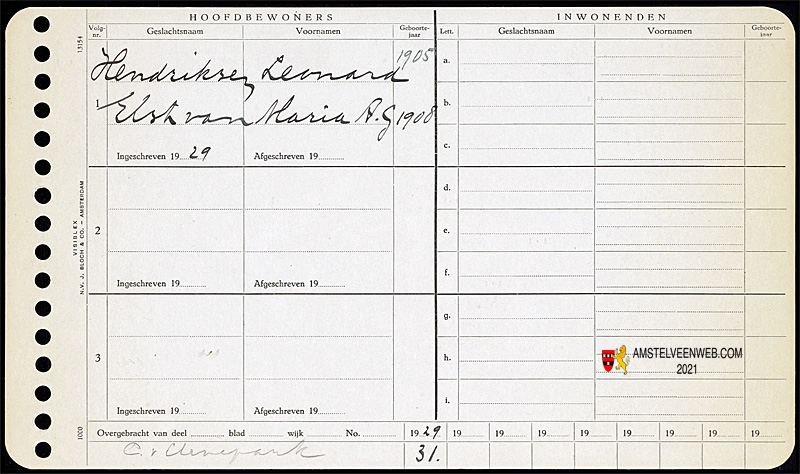 HOOFDBEWONERS
Volg-nr. Geslachtsnaam Voornamen Geboorte-jaar
Hendriksen Leonard 1905
1 Elst van Maria A.G 1908
Ingeschreven 19 29 Afgeschreven 19
2
Ingeschreven 19 Afgeschreven 19
3
Ingeschreven 19 Afgeschreven 19
INWONENDEN
Lett. Geslachtsnaam Voornamen Geboorte-jaar
a.
b.
c.
d.
e.
f.
g.
h.
i.
AMSTELVEENWEB.COM
2021
Overgebracht van deel blad wijk No. 19 29 19 19 19 19 19 19 19 19
31.
13154
VISIBLEX
N.V. J. BLOCH & CO. – AMSTERDAM
1000